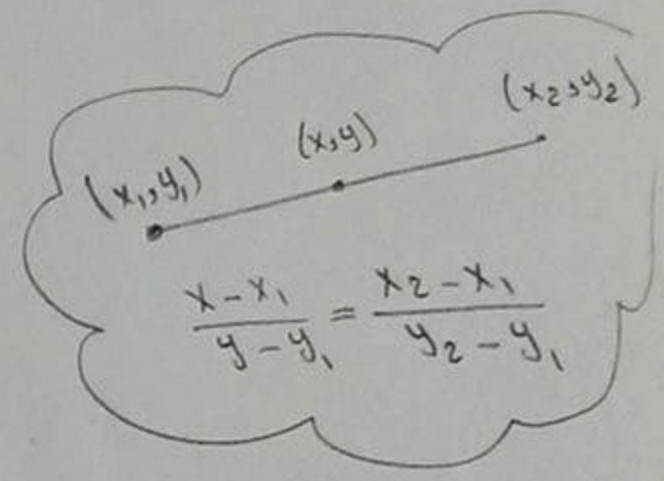 (x₂,y₂)
(x,y)
(x₁,y₁)
x-x₁ / y-y₁ = x₂-x₁ / y₂-y₁